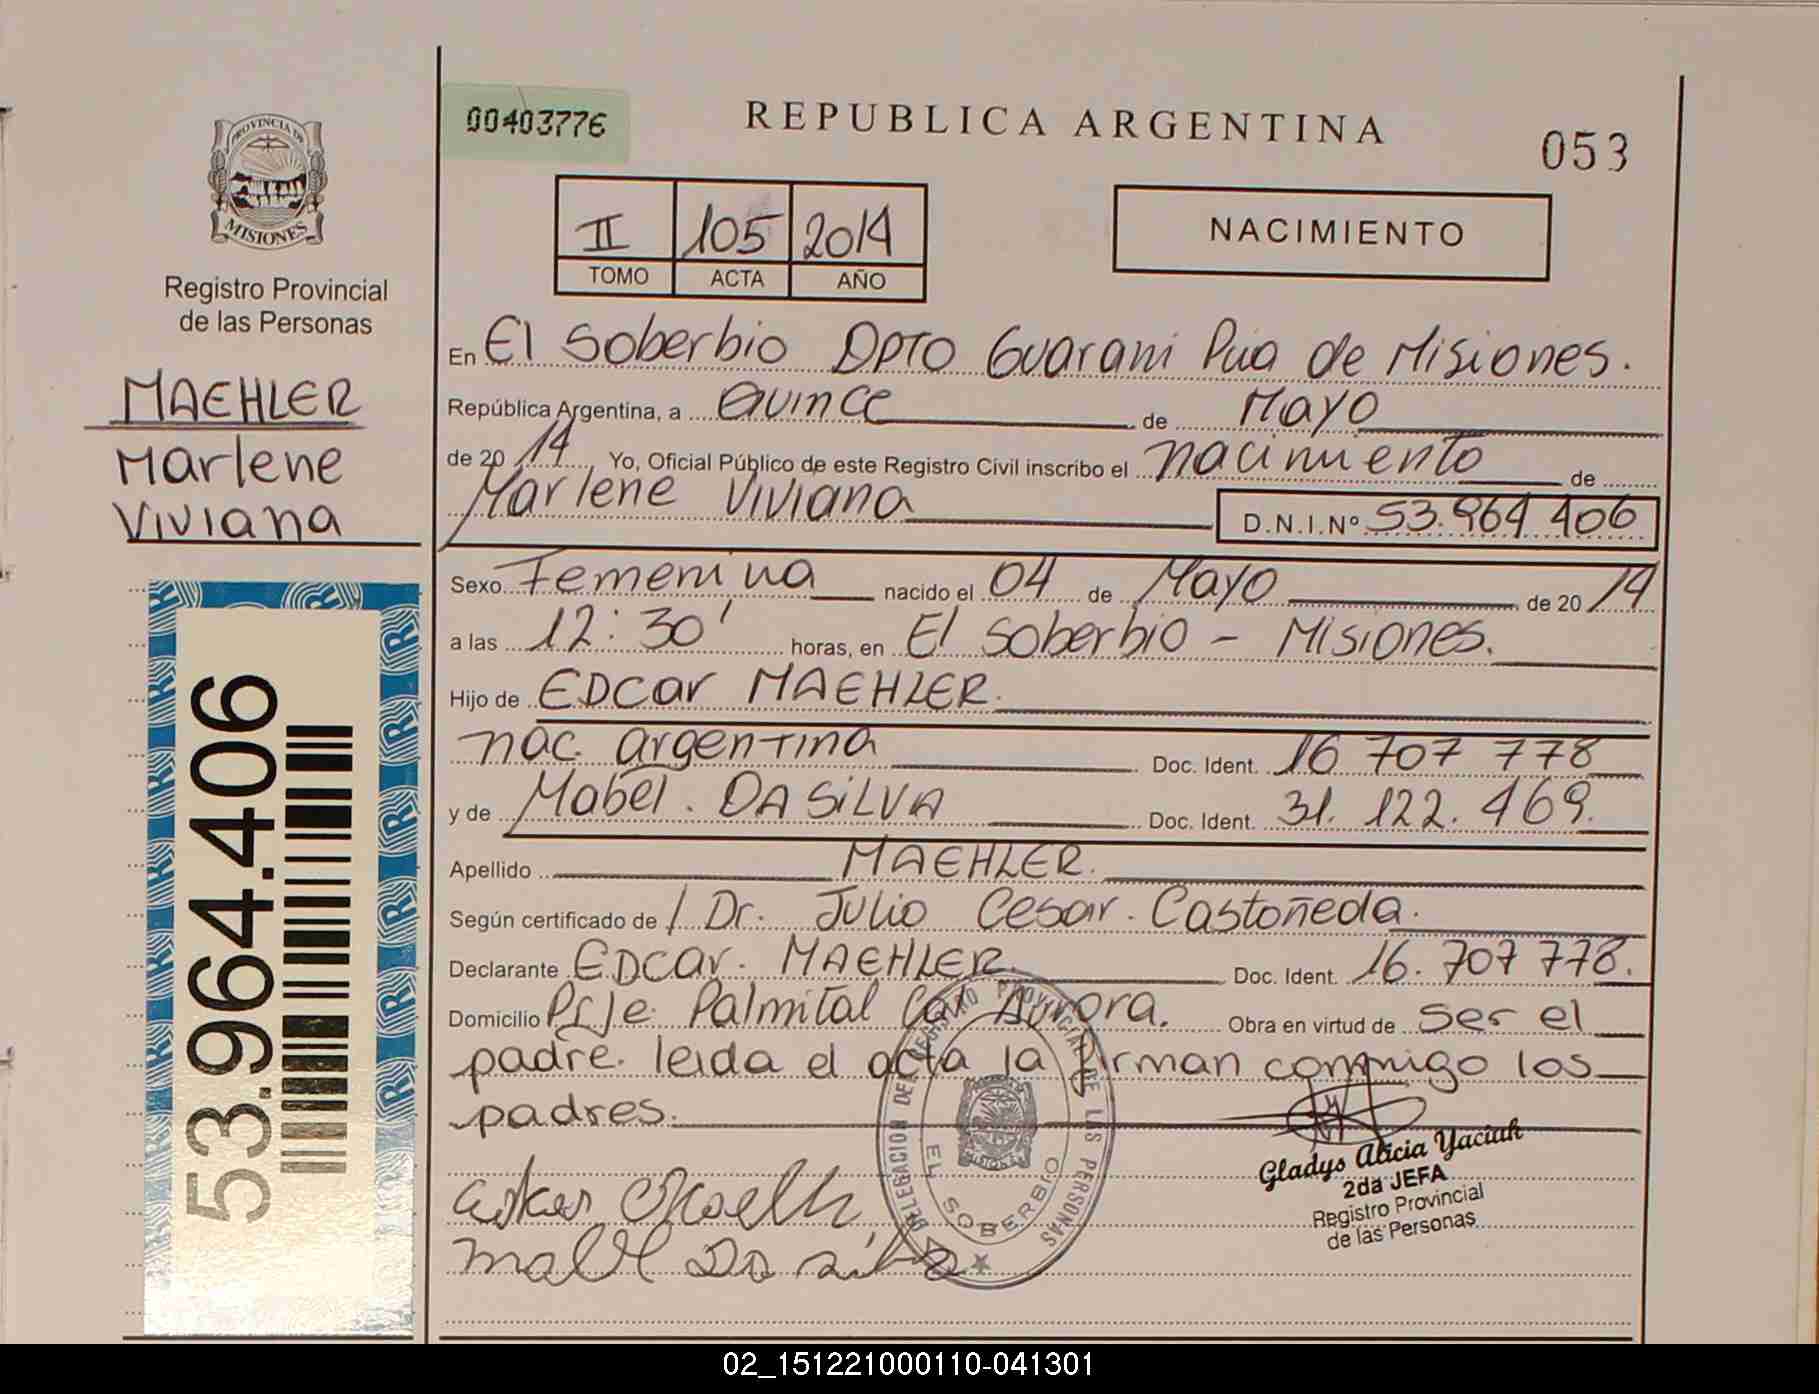 00403776
REPUBLICA ARGENTINA
053
PROVINCIA DE
MISIONES
Registro Provincial
de las Personas
II 105 2014
TOMO ACTA AÑO
NACIMIENTO
MAEHLER
Marlene
Viviana
53.964.406
En El Soberbio Dpto Guarani Pcia de Misiones.
República Argentina, a Quince de Mayo
de 2014 Yo, Oficial Público de este Registro Civil inscribo el nacimiento de
Marlene Viviana D.N.I.Nº 53.964.406
Sexo Femenina nacido el 04 de Mayo de 2014
a las 12:30' horas, en El Soberbio - Misiones.
Hijo de EDCar MAEHLER.
nac. argentina Doc. Ident. 16 707 778
y de Mabel. DA SiLVA Doc. Ident. 31.122.469.
Apellido MAEHLER.
Según certificado de Dr. Julio Cesar. Castoñeda.
Declarante EDCar. MAEHLER. Doc. Ident. 16.707 778.
Domicilio Pje Palmital Col Aurora. Obra en virtud de ser el
padre. leida el acta la firman conmigo los
padres.
DELEGACION DEL REGISTRO PROVINCIAL DE LAS PERSONAS
MISIONES
EL SOBERBIO
Gladys Alicia Yaciuk
2da JEFA
Registro Provincial
de las Personas
Da silva
02_151221000110-041301